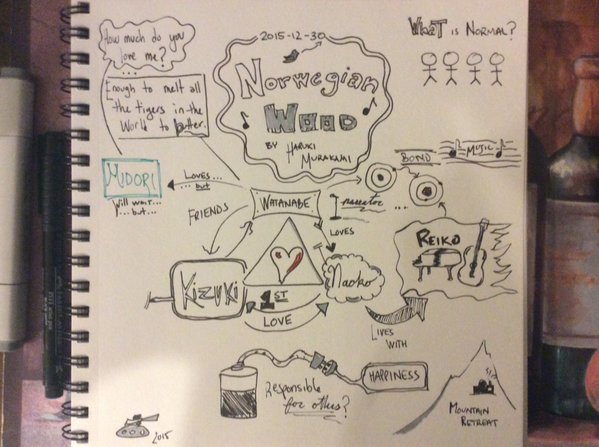 How much do you
love me?
...
Enough to melt all
the tigers in the
World to butter.
2015-12-30
Norwegian
Wood
BY HARUKI
MURAKAMI
WHAT IS NORMAL?
MIDORI
Will wait...
... but...
Loves...
... but
WATANABE
I narrator
...
BOND
MUSIC
FRIENDS
LOVES
REIKO
KIZUKI
1ST
LOVE
Naoko
LIVES
WITH
Responsible
for others?
HAPPINESS
MOUNTAIN
RETREAT
2015